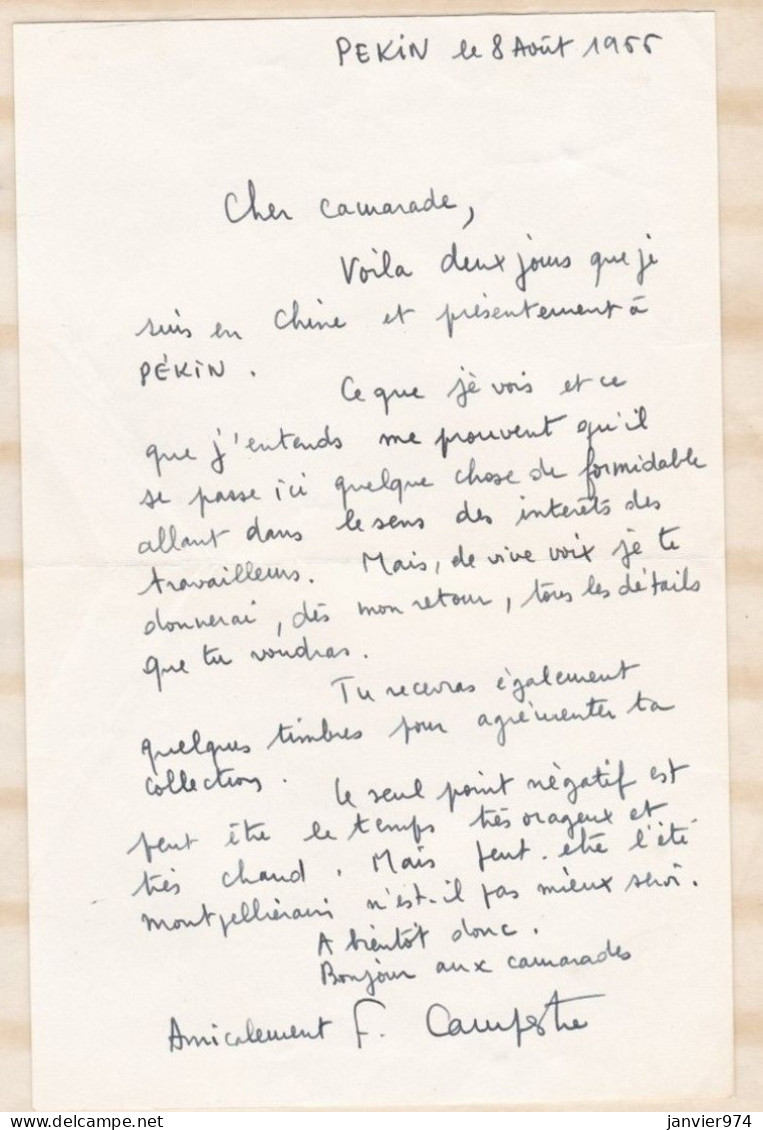 PEKIN le 8 Août 1955
Cher camarade,
Voila deux jours que je
suis en Chine et présentement à
PÉKIN.
Ce que je vois et ce
que j'entends me prouvent qu'il
se passe ici quelque chose de formidable
allant dans le sens des interêts des
travailleurs. Mais, de vive voix je te
donnerai, dès mon retour, tous les détails
que tu voudras.
Tu recevras également
quelques timbres pour agrémenter ta
collection. Le seul point négatif est
peut être le temps très orageux et
très chaud. Mais peut-etre l'été
montpelliérain n'est-il pas mieux servi.
A bientôt donc.
Bonjour aux camarades
Amicalement F. Campestre
delcampe.net
janvier974